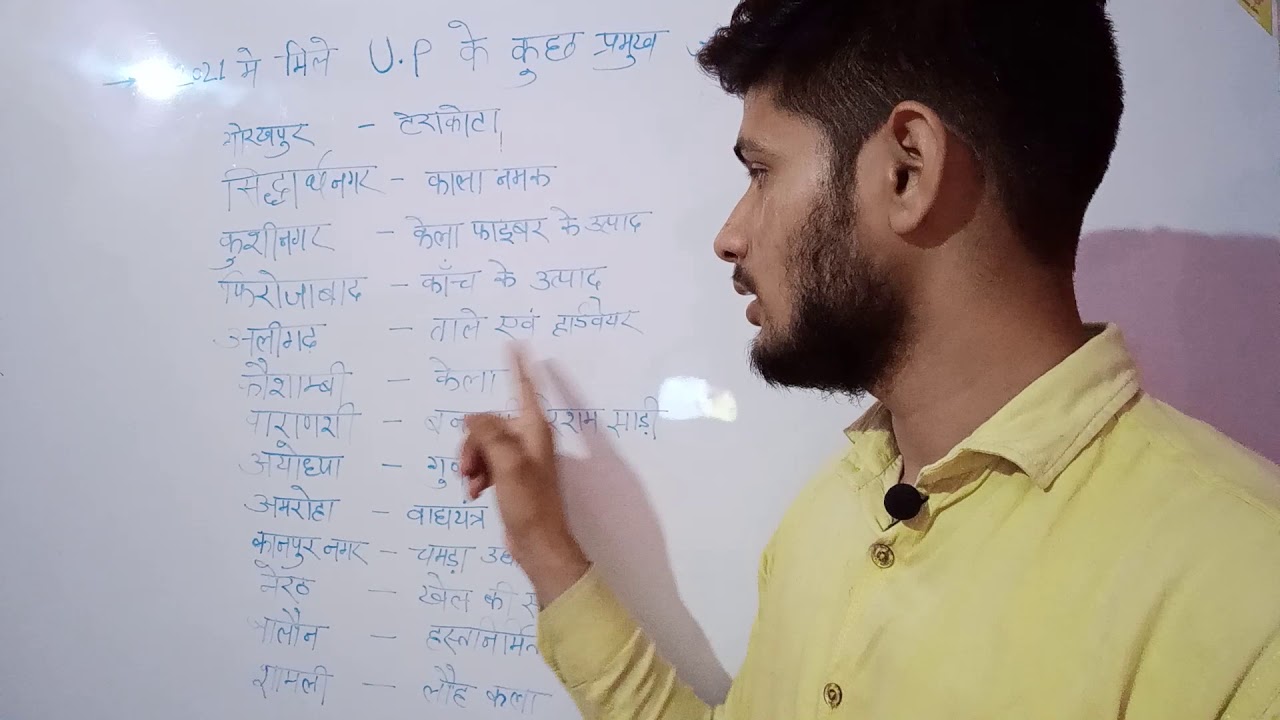 → 2021 मे मिले U.P के कुछ प्रमुख
गोरखपुर - टेराकोटा
सिद्धार्थनगर - काला नमक
कुशीनगर - केला फाइबर के उत्पाद
फिरोजाबाद - काँच के उत्पाद
अलीगढ़ - ताले एवं हार्डवेयर
कौशाम्बी - केला
वाराणसी - साड़ी
अयोध्या -
अमरोहा - वाद्ययंत्र
कानपुर नगर - चमड़ा
मेरठ - खेल की
जालौन - हस्तनिर्मित
शामली - लौह कला